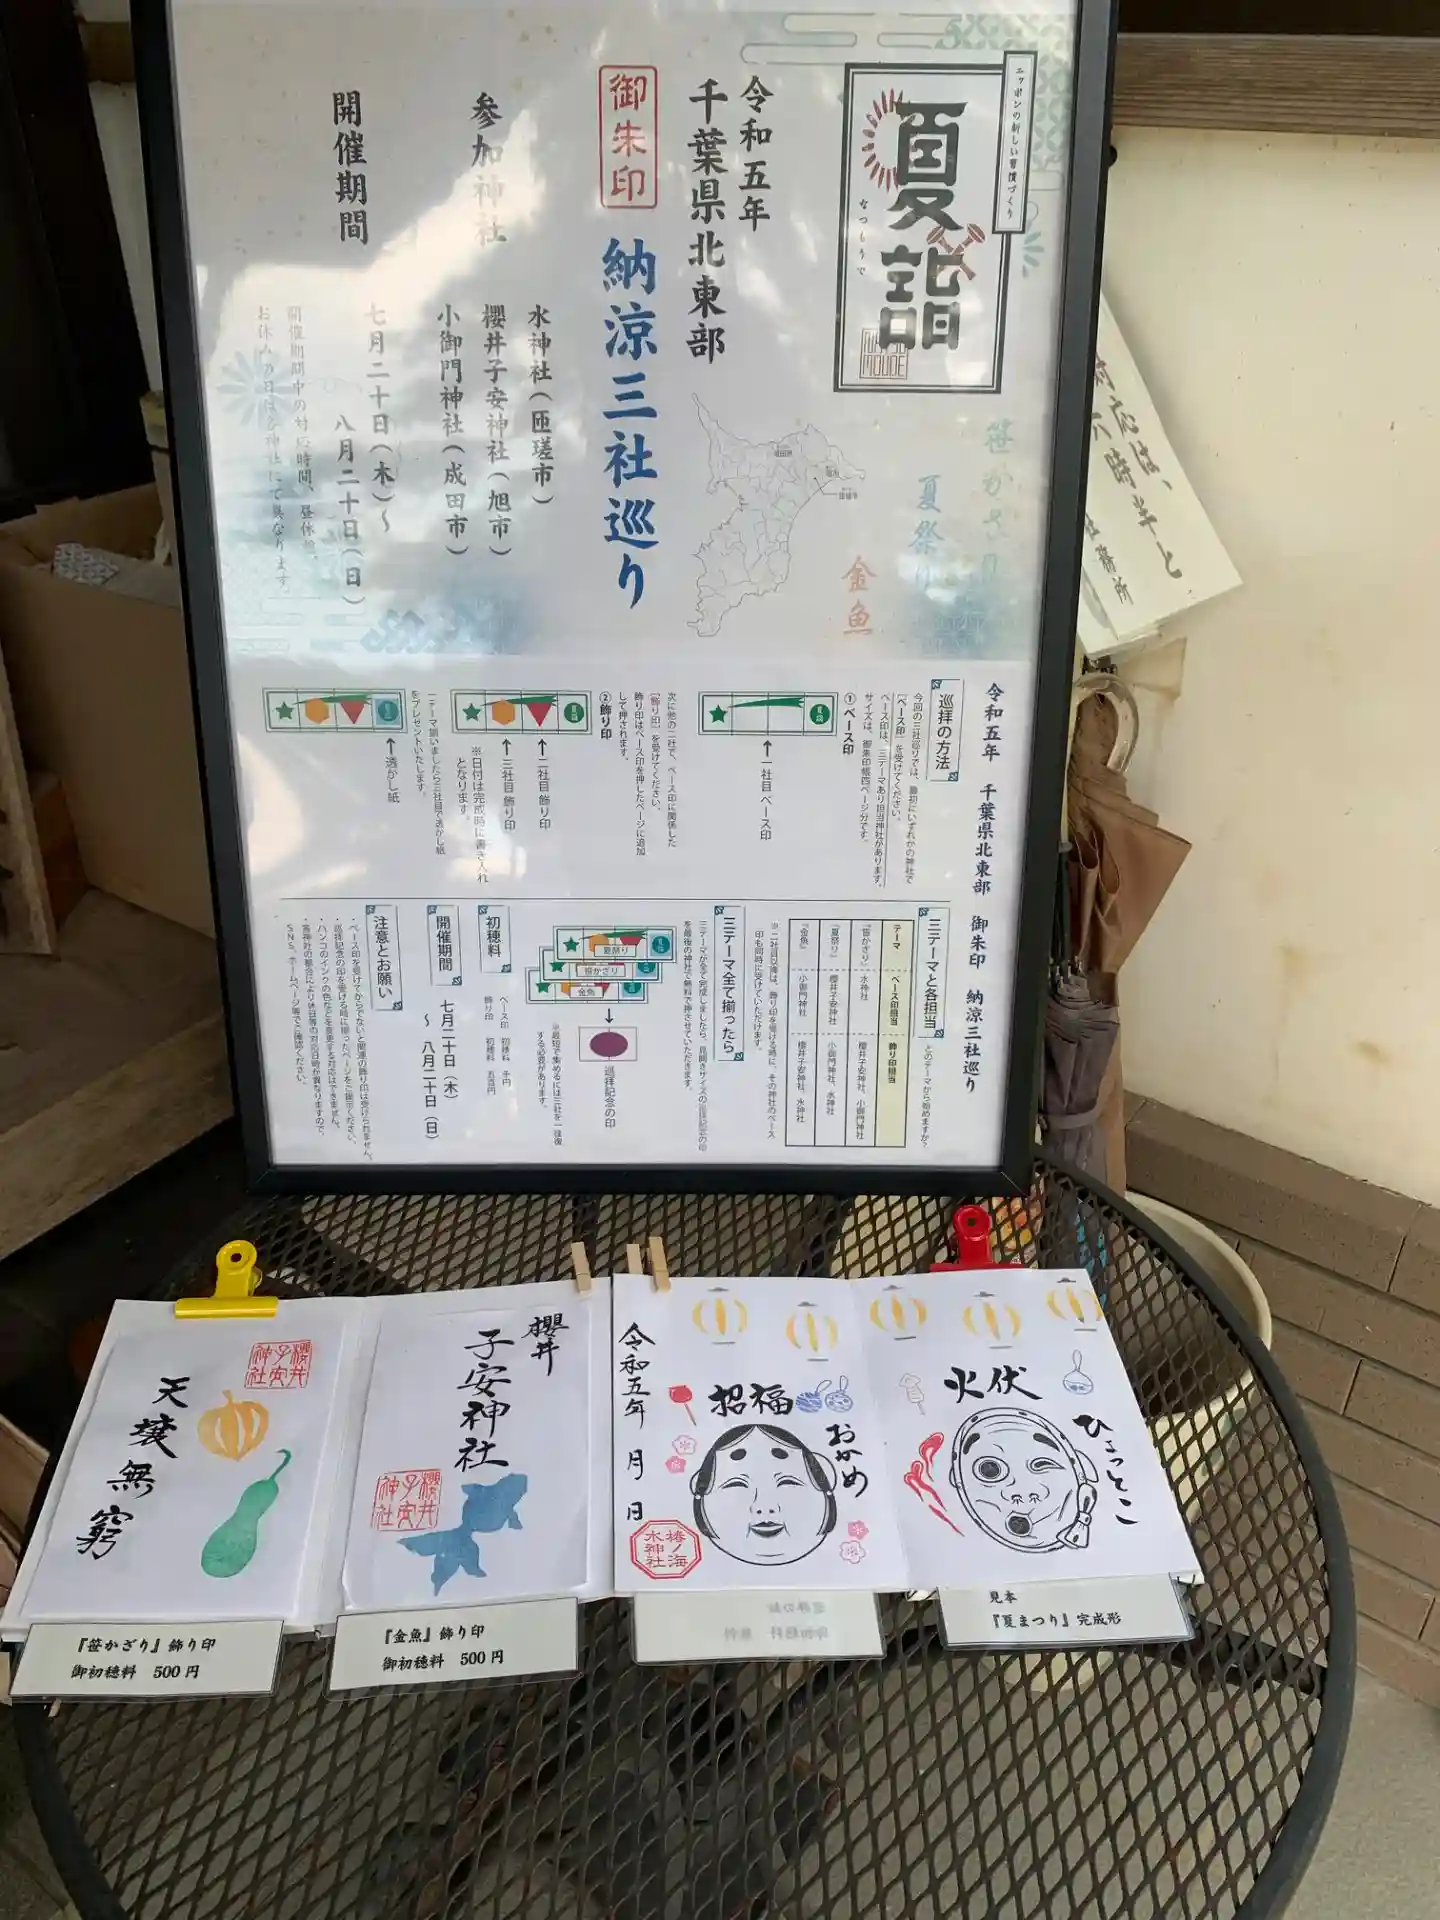 ニッポンの新しい習慣づくり
夏詣
なつもうで
NATSU
MOUDE
令和五年
千葉県北東部
御朱印
納涼三社巡り
参加神社
水神社(匝瑳市)
櫻井子安神社(旭市)
小御門神社(成田市)
開催期間
七月二十日(木)〜
八月二十日(日)
開催期間中の対応時間、昼休憩、
お休みの日は各神社にて異なります。
笹かざり
夏祭り
金魚
対応は、
六時半と
社務所
令和五年 千葉県北東部 御朱印 納涼三社巡り
巡拝の方法
今回の三社巡りでは、最初にいずれかの神社で
[ベース印]を受けてください。
ベース印は、三テーマあり担当神社があります。
サイズは、御朱印帳四ページ分です。
①ベース印
↑一社目 ベース印
次に他の二社で、ベース印に関係した
[飾り印]を受けてください。
飾り印はベース印を押したページに追加
して押されます。
②飾り印
↑二社目 飾り印
↑三社目 飾り印
※日付は完成時に書き入れ
となります。
三テーマ揃いましたら三社目で透かし紙
をプレゼントいたします。
↑透かし紙
三テーマと各担当
どのテーマから始めますか?
テーマ ベース印担当 飾り印担当
『笹かざり』 水神社 櫻井子安神社、小御門神社
『夏祭り』 櫻井子安神社 小御門神社、水神社
『金魚』 小御門神社 櫻井子安神社、水神社
※二社目以降は、飾り印を受ける時に、その神社のベース
印も同時に受けていただけます。
三テーマ全て揃ったら
三テーマが全て完成しましたら、見開きサイズの巡拝記念の印
を最後の神社で無料で押させていただきます。
夏祭り
笹かざり
金魚
巡拝記念の印
※最短で集めるには三社を一往復
する必要があります。
初穂料
ベース印 初穂料 千円
飾り印 初穂料 五百円
開催期間
七月二十日(木)
〜 八月二十日(日)
注意とお願い
・ベース印を受けてからでないと関連の飾り印は受けられません。
・巡拝記念の印を受ける時に揃ったページをご提示ください。
・ハンコのインクの色などを変更する対応はできません。
・各神社の都合により休日等の対応日時が異なりますので、
SNS、ホームページ等でご確認ください。
櫻井
子安
神社
天壌無窮
『笹かざり』飾り印
御初穂料 500円
櫻井
子安神社
櫻井
子安
神社
『金魚』飾り印
御初穂料 500円
火伏
ひょっとこ
招福
おかめ
令和五年 月 日
椿ノ海
水神社
見本
『夏まつり』完成形